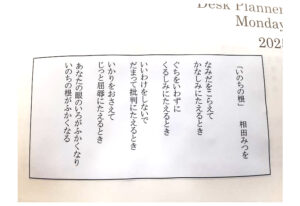 Desk Planner
Monday
2025
「いのちの根」　相田みつを
なみだをこらえて
かなしみにたえるとき
ぐちをいわずに
くるしみにたえるとき
いいわけをしないで
だまって批判にたえるとき
いかりをおさえて
じっと屈辱にたえるとき
あなたの眼のいろがふかくなり
いのちの根がふかくなる